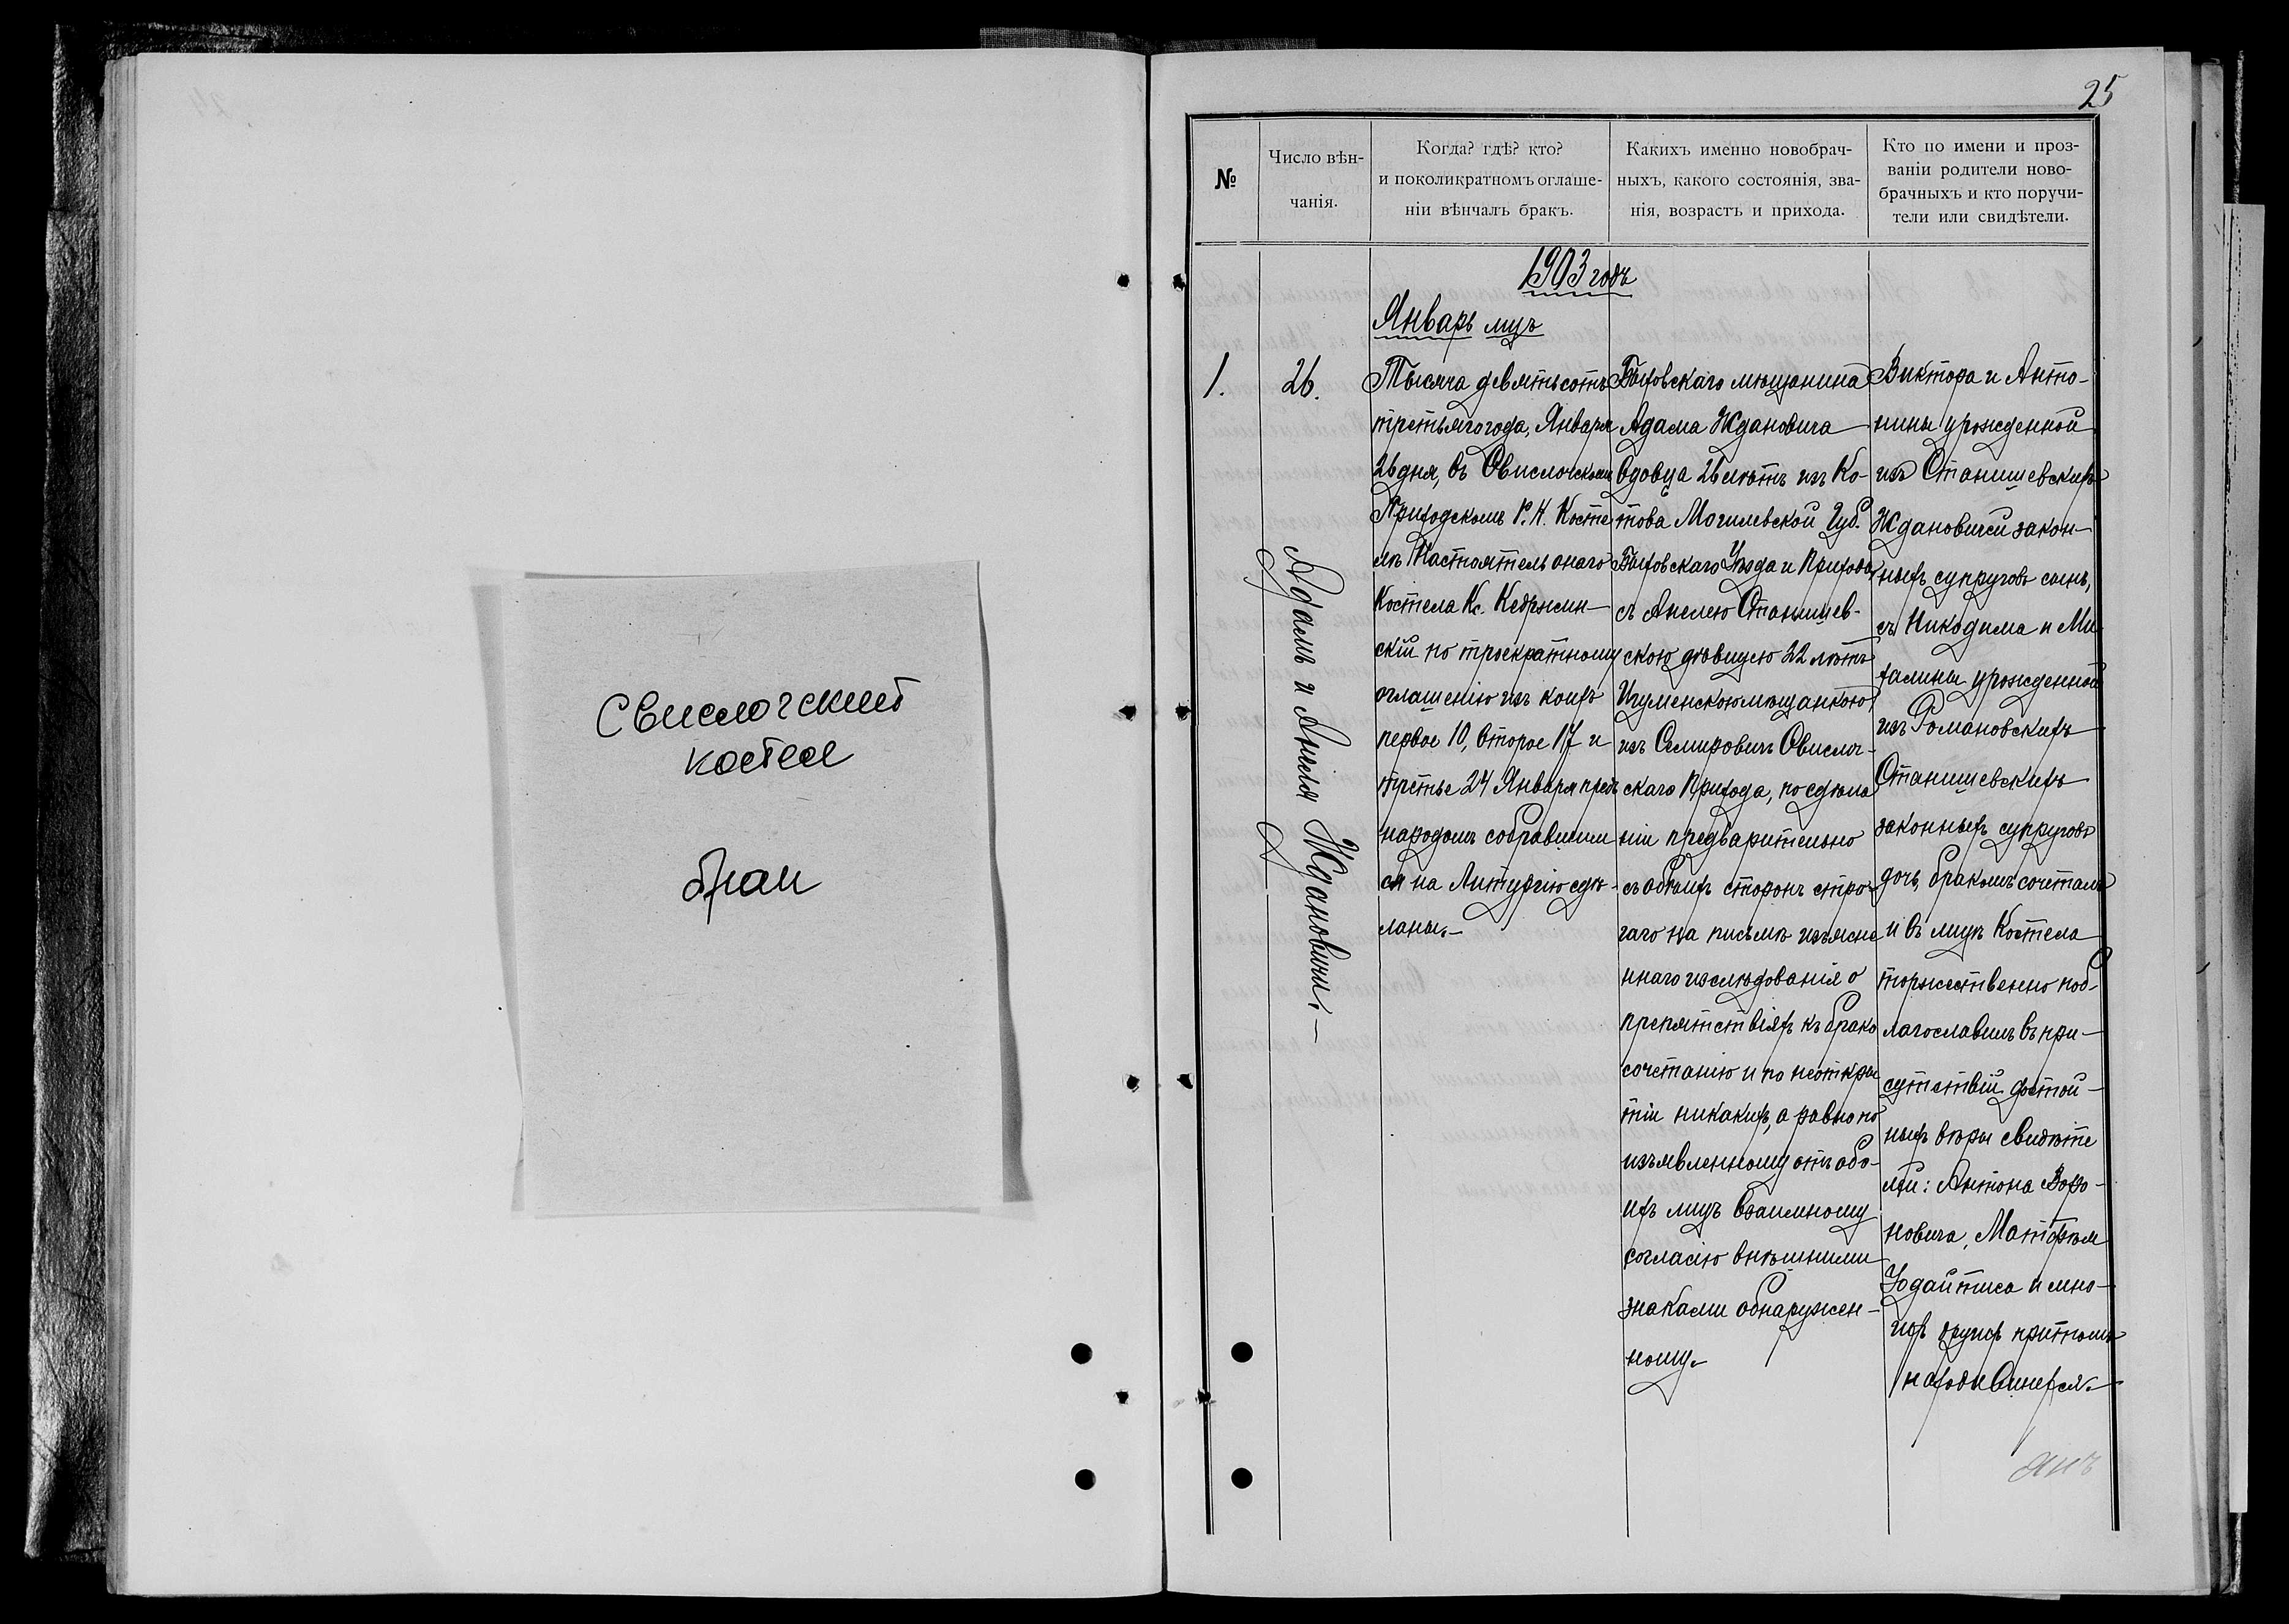 Свислочский
костел
брак
25
№
Число вѣн-
чанія.
Когда? гдѣ? кто?
и поколикратномъ оглаше-
ніи вѣнчалъ бракъ.
Какихъ именно новобрач-
ныхъ, какого состоянія, зва-
нія, возрастъ и прихода.
Кто по имени и проз-
ваніи родители ново-
брачныхъ и кто поручи-
тели или свидѣтели.
1903 годъ
Январь мцъ
1.
26.
Адамъ и Анеля Ждановичи.—
Тысяча девятьсотъ
третьяго года, Января
26 дня, въ Свислочскомъ
Приходскомъ Р. К. Косте
лѣ Настоятель онаго
Костела Кс. Кедржин-
скій по троекратному
оглашенію изъ коихъ
первое 10, второе 17 и
третье 24 Января предъ
народомъ собравшим
ся на Литургію сдѣ-
ланы.—
Быховскаго мѣщанина
Адама Ждановича
вдовца 26 лѣтъ изъ Ко-
това Могилевской Губ.
Быховскаго Уѣзда и Прихода
съ Анелею Станишев-
скою дѣвицею 22 лѣтъ
Игуменскою мѣщанкою
изъ Семировичъ Свислоч-
скаго Прихода, по сдѣла
ніи предварительно
съ обѣихъ сторонъ стро-
гаго на письмѣ изъясне
ннаго изслѣдованія о
препятствіяхъ къ брако
сочетанію и по неоткры
тіи никакихъ, а равно по
изъявленному отъ обо-
ихъ лицъ взаимному
согласію внѣшними
знаками обнаружен-
ному.
Виктора и Анто-
нины урожденной
изъ Станишевскихъ
Ждановичей закон-
ныхъ супруговъ сынъ,
съ Никодима и Ми
халины урожденной
изъ Романовскихъ
Станишевскихъ
законныхъ супруговъ
дочь, бракомъ сочеталъ
и въ лицѣ Костела
торжественно поб-
лагославилъ въ при-
сутствіи достой-
ныхъ вѣры свидѣте
лей: Антона Воро-
новича, Матфея
Юдайтиса и мно-
гихъ другихъ притомъ
находившихся.